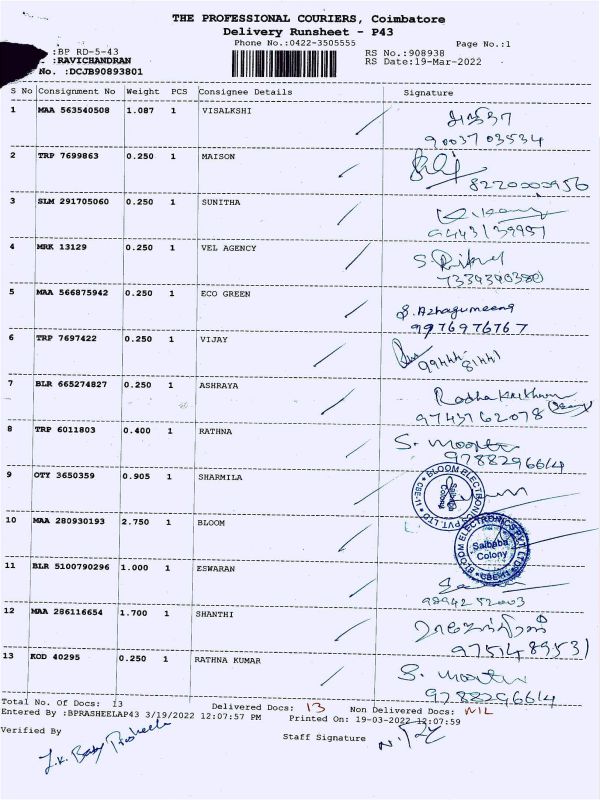 THE PROFESSIONAL COURIERS, Coimbatore
Delivery Runsheet - P43
Phone No.:0422-3505555 Page No.:1
:BP RD-5-43 RS No.:908938
: RAVICHANDRAN RS Date:19-Mar-2022
No. :DCJB90893801
S No Consignment No Weight PCS Consignee Details Signature
1 MAA 563540508 1.087 1 VISALKSHI
9003703534
2 TRP 7699863 0.250 1 MAISON
8220000956
3 SLM 291705060 0.250 1 SUNITHA
9443139951
4 MRK 13129 0.250 1 VEL AGENCY
7339390380
5 MAA 566875942 0.250 1 ECO GREEN
S. Azhagumeena
9976976767
6 TRP 7697422 0.250 1 VIJAY
99444-81441
7 BLR 665274827 0.250 1 ASHRAYA
Radhakrithnan
9743162078
8 TRP 6011803 0.400 1 RATHNA S. Moorthy
9788296614
9 OTY 3650359 0.905 1 SHARMILA
BLOOM ELECTRONICS PVT. LTD CBE-11
Saibaba Colony
10 MAA 280930193 2.750 1 BLOOM
BLOOM ELECTRONICS PVT. LTD CBE-11
Saibaba Colony
11 BLR 5100790296 1.000 1 ESWARAN
9894252003
12 MAA 286116654 1.700 1 SHANTHI
9751489531
13 KOD 40295 0.250 1 RATHNA KUMAR S. Moorthy
9788296614
Total No. Of Docs: 13 Delivered Docs: 13 Non Delivered Docs: NIL
Entered By :BPRASHEELAP43 3/19/2022 12:07:57 PM Printed On: 19-03-2022 12:07:59
Verified By Staff Signature